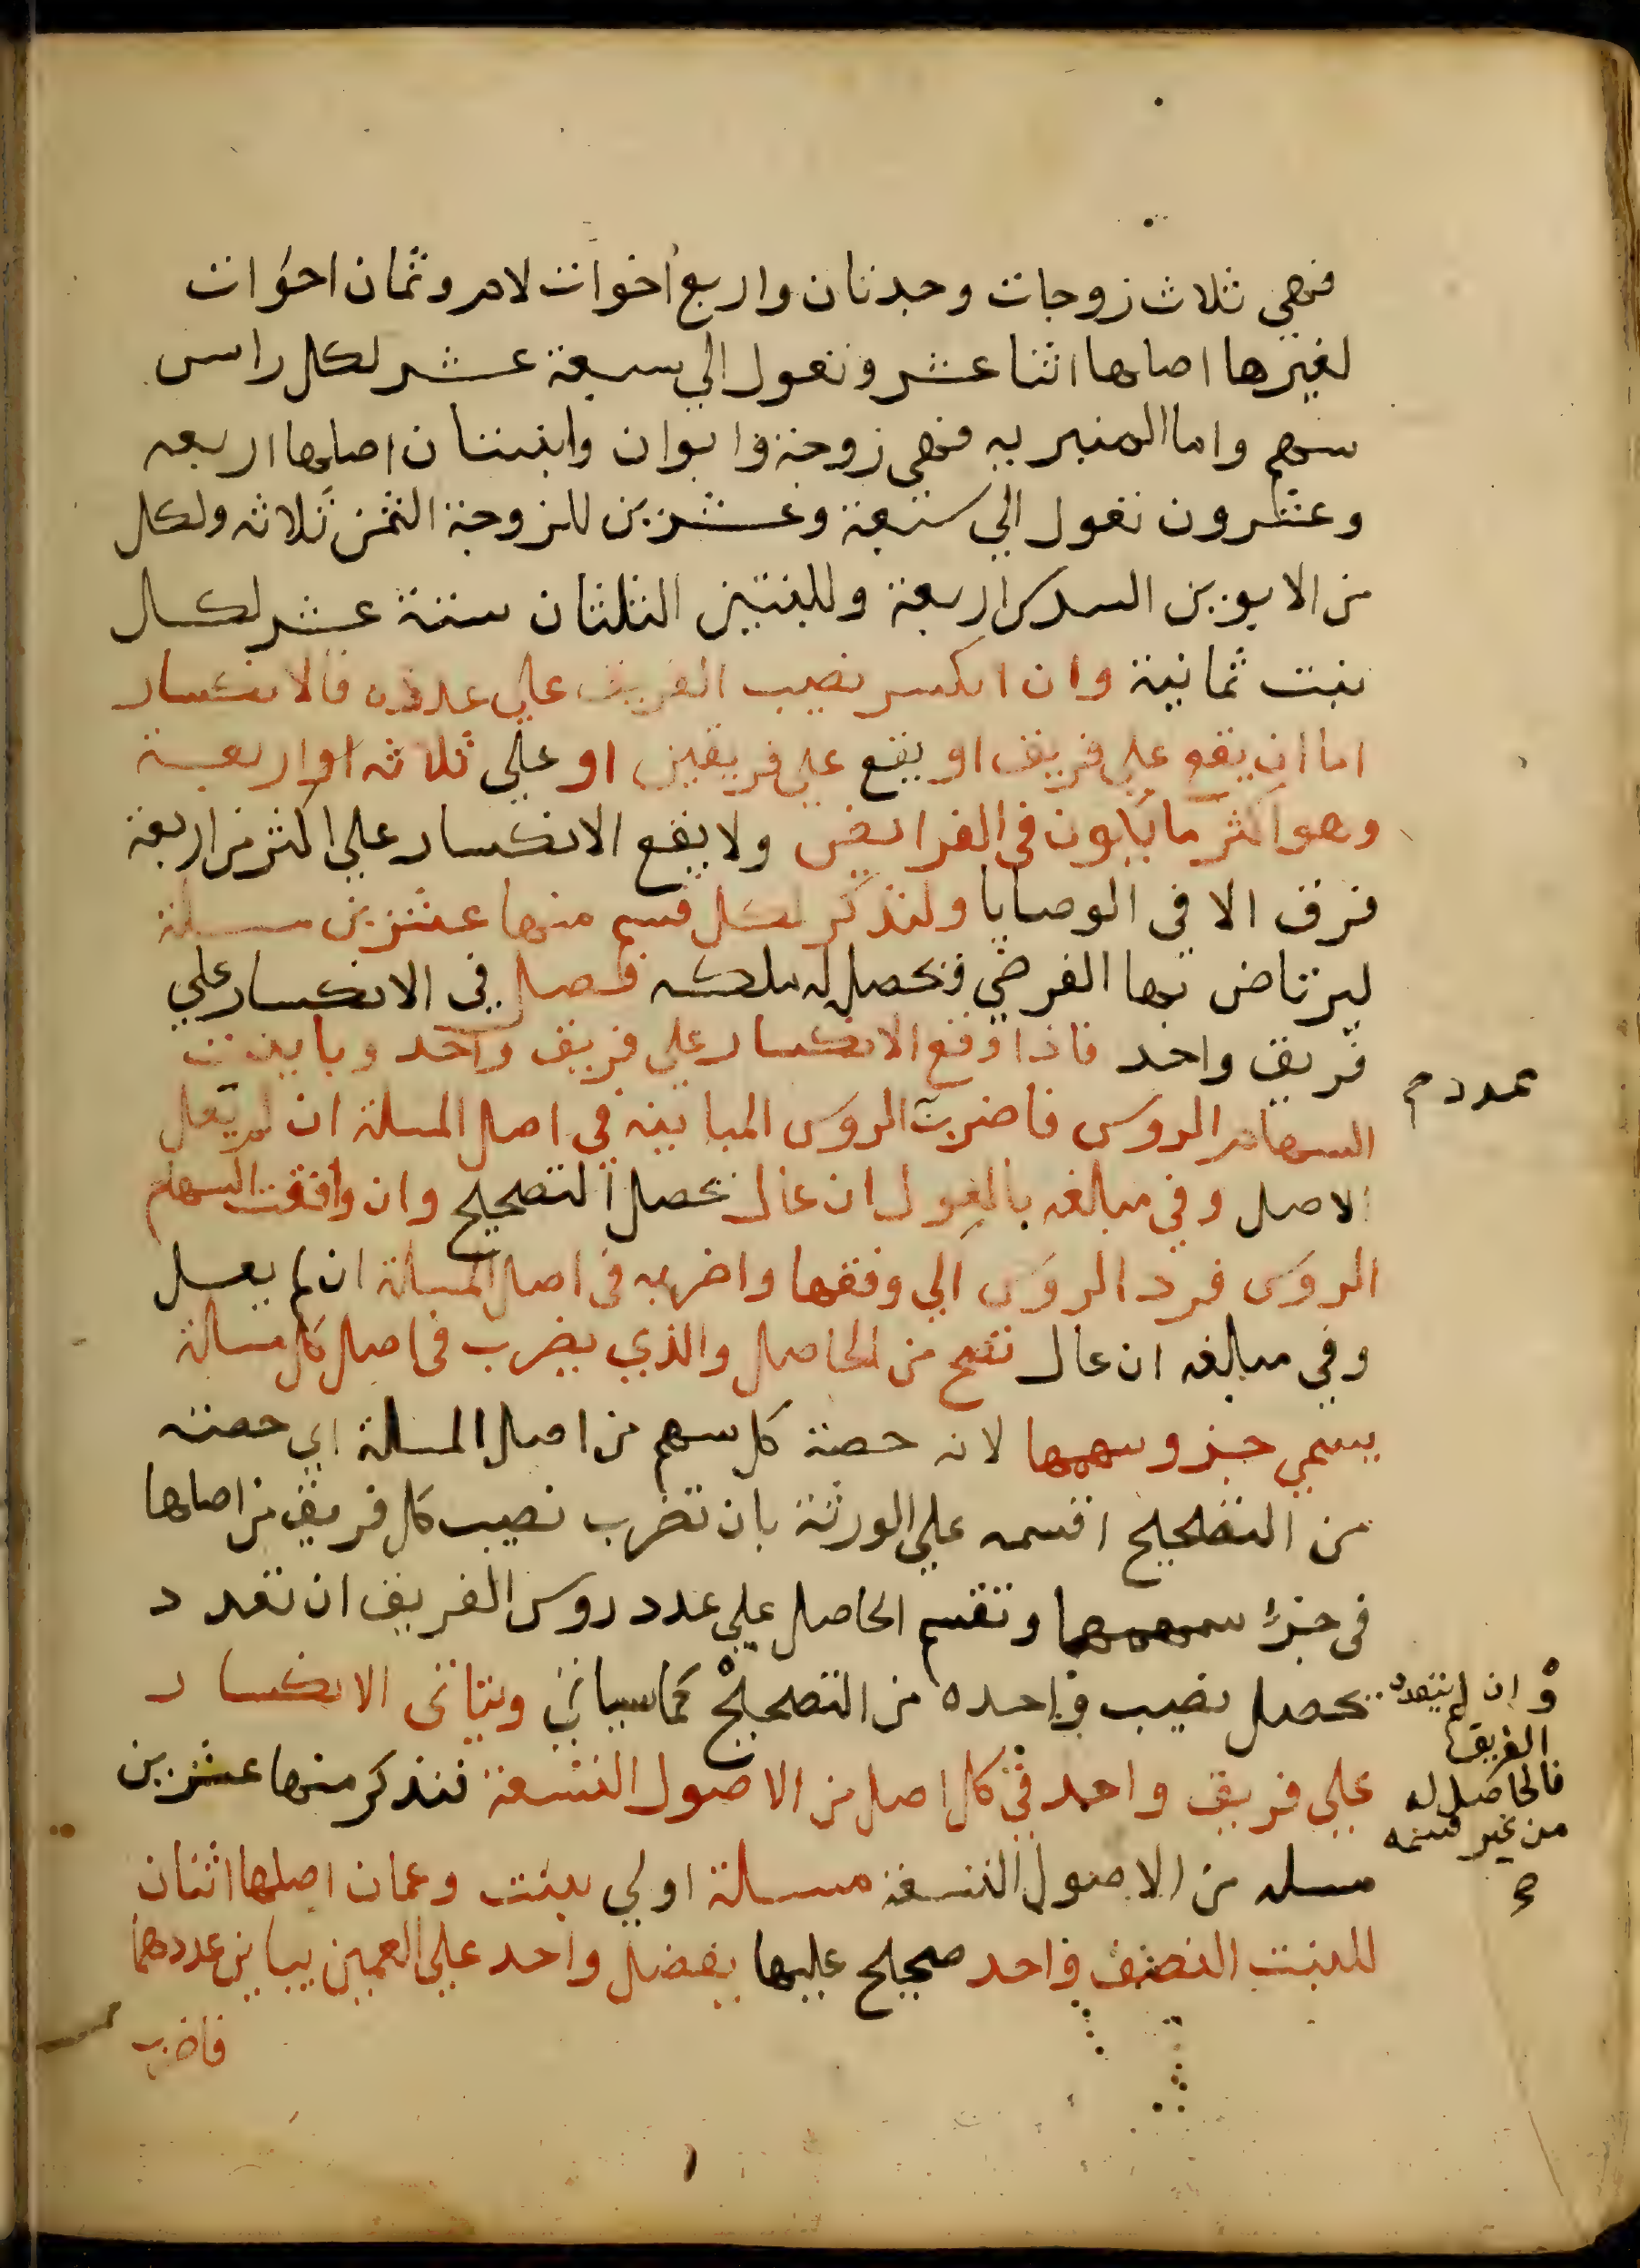 فهي ثلاث زوجات وجدتان واربع اخوات لام وثمان اخوات
لغيرها اصلها اثنا عشر وتعول الي سبعة عشر لكل راس
سهم واما المنبريه فهي زوجة وابوان وابنتان اصلها اربعه
وعشرون تعول الي سبعة وعشرين للزوجة الثمن ثلاثه ولكل
من الابوين السدس اربعة وللبنتين الثلثان ستة عشر لكل
بنت ثمانية وان انكسر نصيب الفريق علي عدده فالانكسار
اما ان يقع علي فريق او يقع علي فريقين او علي ثلاثه او اربعة
وهو اكثر ما يكون في الفرايض ولا يقع الانكسار علي اكثر من اربعة
فرق الا في الوصايا ولنذكر لكل قسم منها عشرين مسلة
ليرتاض بها الفرضي فتحصل له ملكه فصل في الانكسار علي
فريق واحد فاذا وقع الانكسار علي فريق واحد وباينت
السهام الروس فاضرب الروس المباينه في اصل المسلة ان لم يعل
الاصل وفي مبلغه بالعول ان عال تحصل التصحيح وان وافقت السهام
الروس فرد الروس الي وفقها واضربه في اصل المسلة ان لم يعل
وفي مبلغه ان عال تصح من الحاصل والذي يضرب في اصل كل مسالة
يسمي جزو سهمها لانه حصة كل سهم من اصل المسلة اي حصته
من التصحيح اقسمه علي الورثة بان تضرب نصيب كل فريق من اصلها
في جزء سهمها وتقسم الحاصل علي عدد روس الفريق ان تعدد
تحصل نصيب واحده من التصحيح كما سياتي ويتاتي الانكسار
علي فريق واحد في كل اصل من الاصول التسعة فنذكر منها عشرين
مسله من الاصول التسعة مسالة اولي بنت وعمان اصلها اثنان
للبنت النصف واحد صحيح عليها يفضل واحد علي العمين يباين عددهما
فاضرب
عدد م
وان لم يتعدد
الفريق
فالحاصل له
من غير قسمه